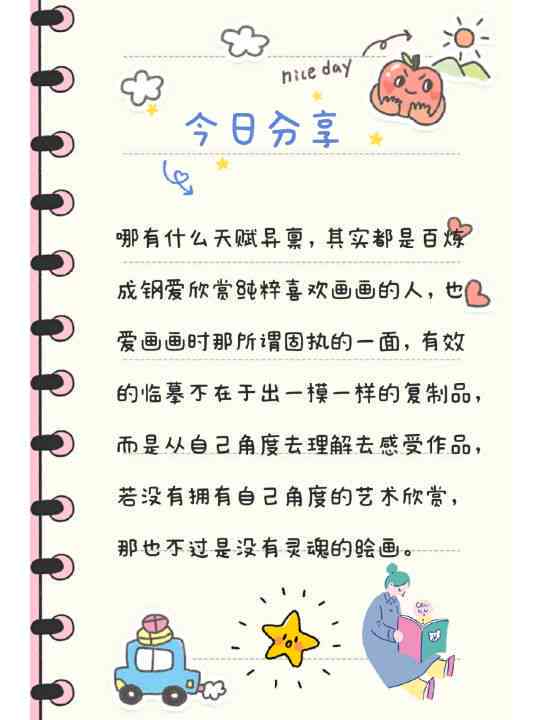 nice day
今日分享
哪有什么天赋异禀，其实都是百炼
成钢爱欣赏纯粹喜欢画画的人，也
爱画画时那所谓固执的一面，有效
的临摹不在于出一摸一样的复制品，
而是从自己角度去理解去感受作品，
若没有拥有自己角度的艺术欣赏，
那也不过是没有灵魂的绘画。